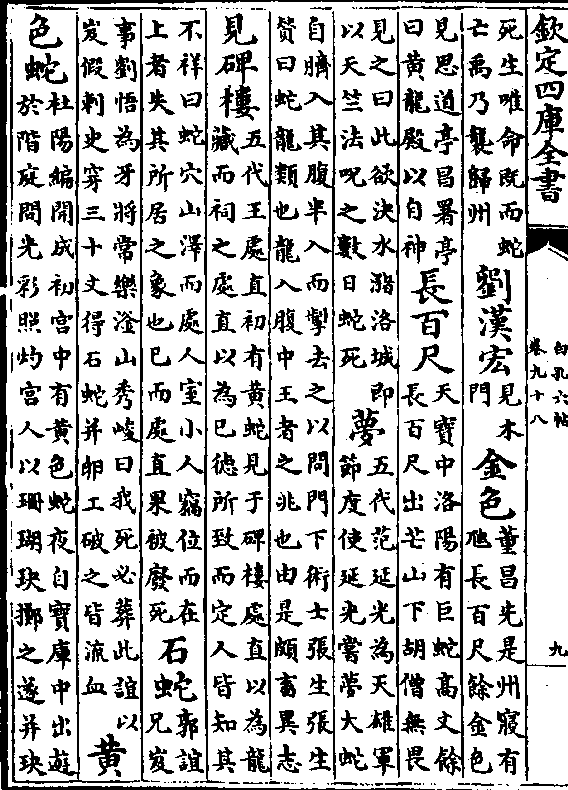 欽定四庫全書
白孔六帖
卷九十八
九
死生唯命既而蛇
亡禹乃襲歸州
劉漢宏
見木
門
金色
董昌先是州寢有
虵長百尺餘金色
見思道亭昌署亭
曰黄龍殿以自神
長百尺
天寶中洛陽有巨蛇高丈餘
長百尺出芒山下胡僧無畏
見之曰此欲決水瀦洛城即
以天竺法呪之數日蛇死
夢
五代范延光為天雄軍
節度使延光嘗夢大蛇
自臍入其腹半入而掣去之以問門下術士張生張生
贊曰蛇龍類也龍入腹中王者之兆也由是頗畜異志
見碑樓
五代王處直初有黄蛇見于碑樓處直以為龍
藏而祠之處直以為已德所致而定人皆知其
不祥曰蛇穴山澤而處人室小人竊位而在
上者失其所居之象也已而處直果被廢死
石蛇
郭誼
兄岌
事劉悟為牙將常樂滏山秀峻曰我死必葬此誼以
岌假刺史穿三十丈得石蛇并卵工破之皆流血
黄
色蛇
杜陽編開成初宫中有黄色蛇夜自寶庫中出遊
於階庭間光彩照灼宫人以珊瑚玦擲之遂并玦